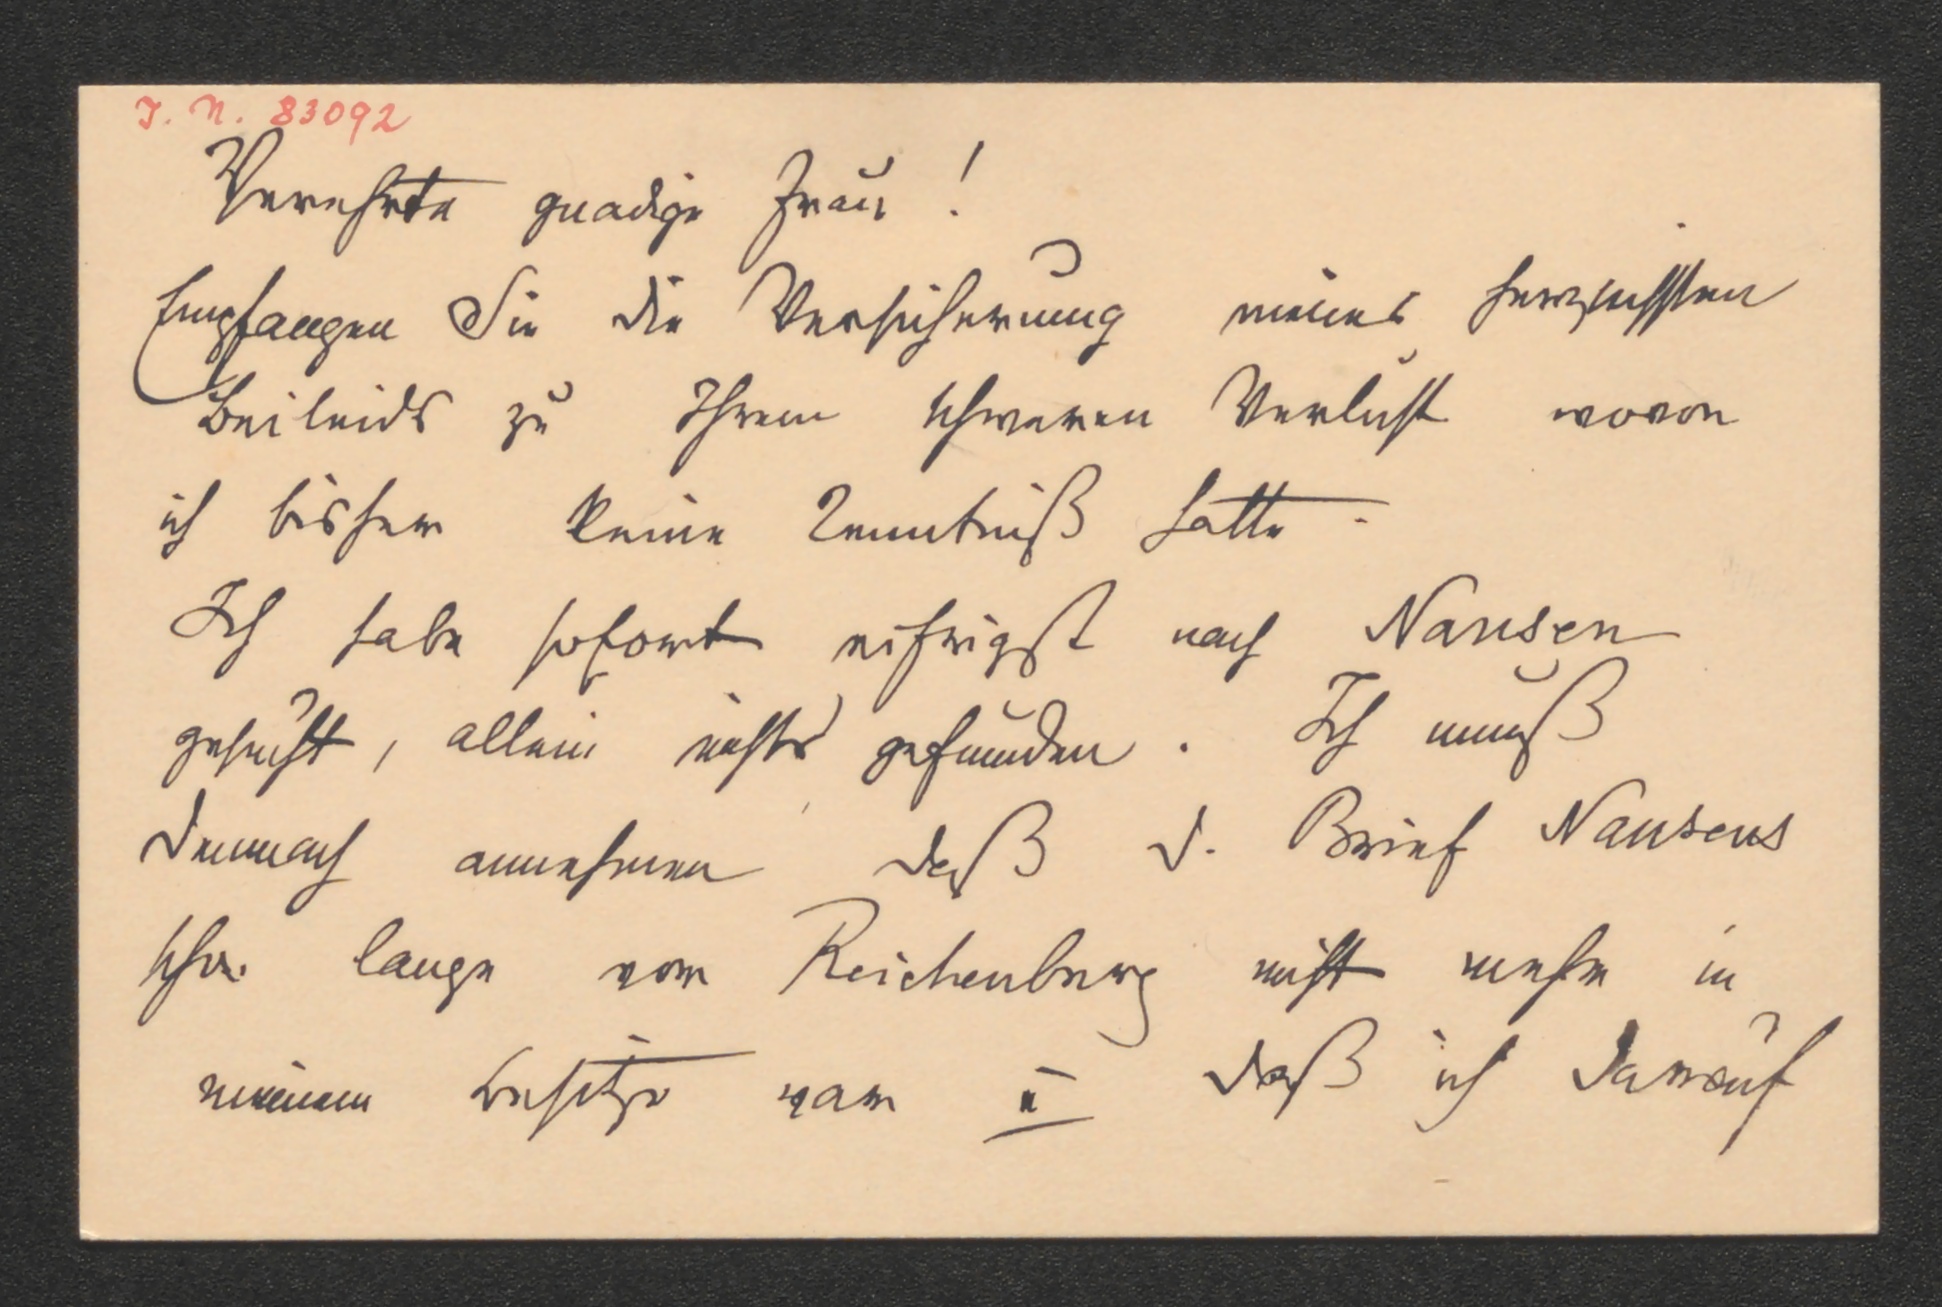 J. N. 83092
Verehrte gnädige Frau!
Empfangen Sie die Versicherung meines herzlichsten
Beileids zu Ihrem schweren Verlust wovon
ich bisher keine Kenntniß hatte.
Ich habe sofort eifrigst nach Nansen
gesucht, allein nichts gefunden. Ich muß
demnach annehmen daß d. Brief Nansens
schon lange von Reichenberg nicht mehr in
meinem Besitze war u daß ich darauf